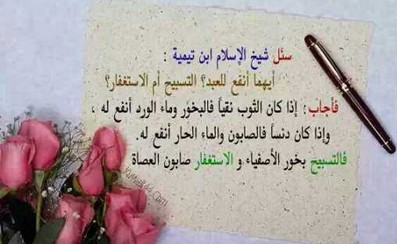 سئل شيخ الإسلام ابن تيمية :
أيهما أنفع للعبد؟ التسبيح أم الاستغفار؟
فأجاب: إذا كان الثوب نقياً فالبخور وماء الورد أنفع له ،
وإذا كان دنساً فالصابون والماء الحار أنفع له.
فالتسبيح بخور الأصفياء و الاستغفار صابون العصاة